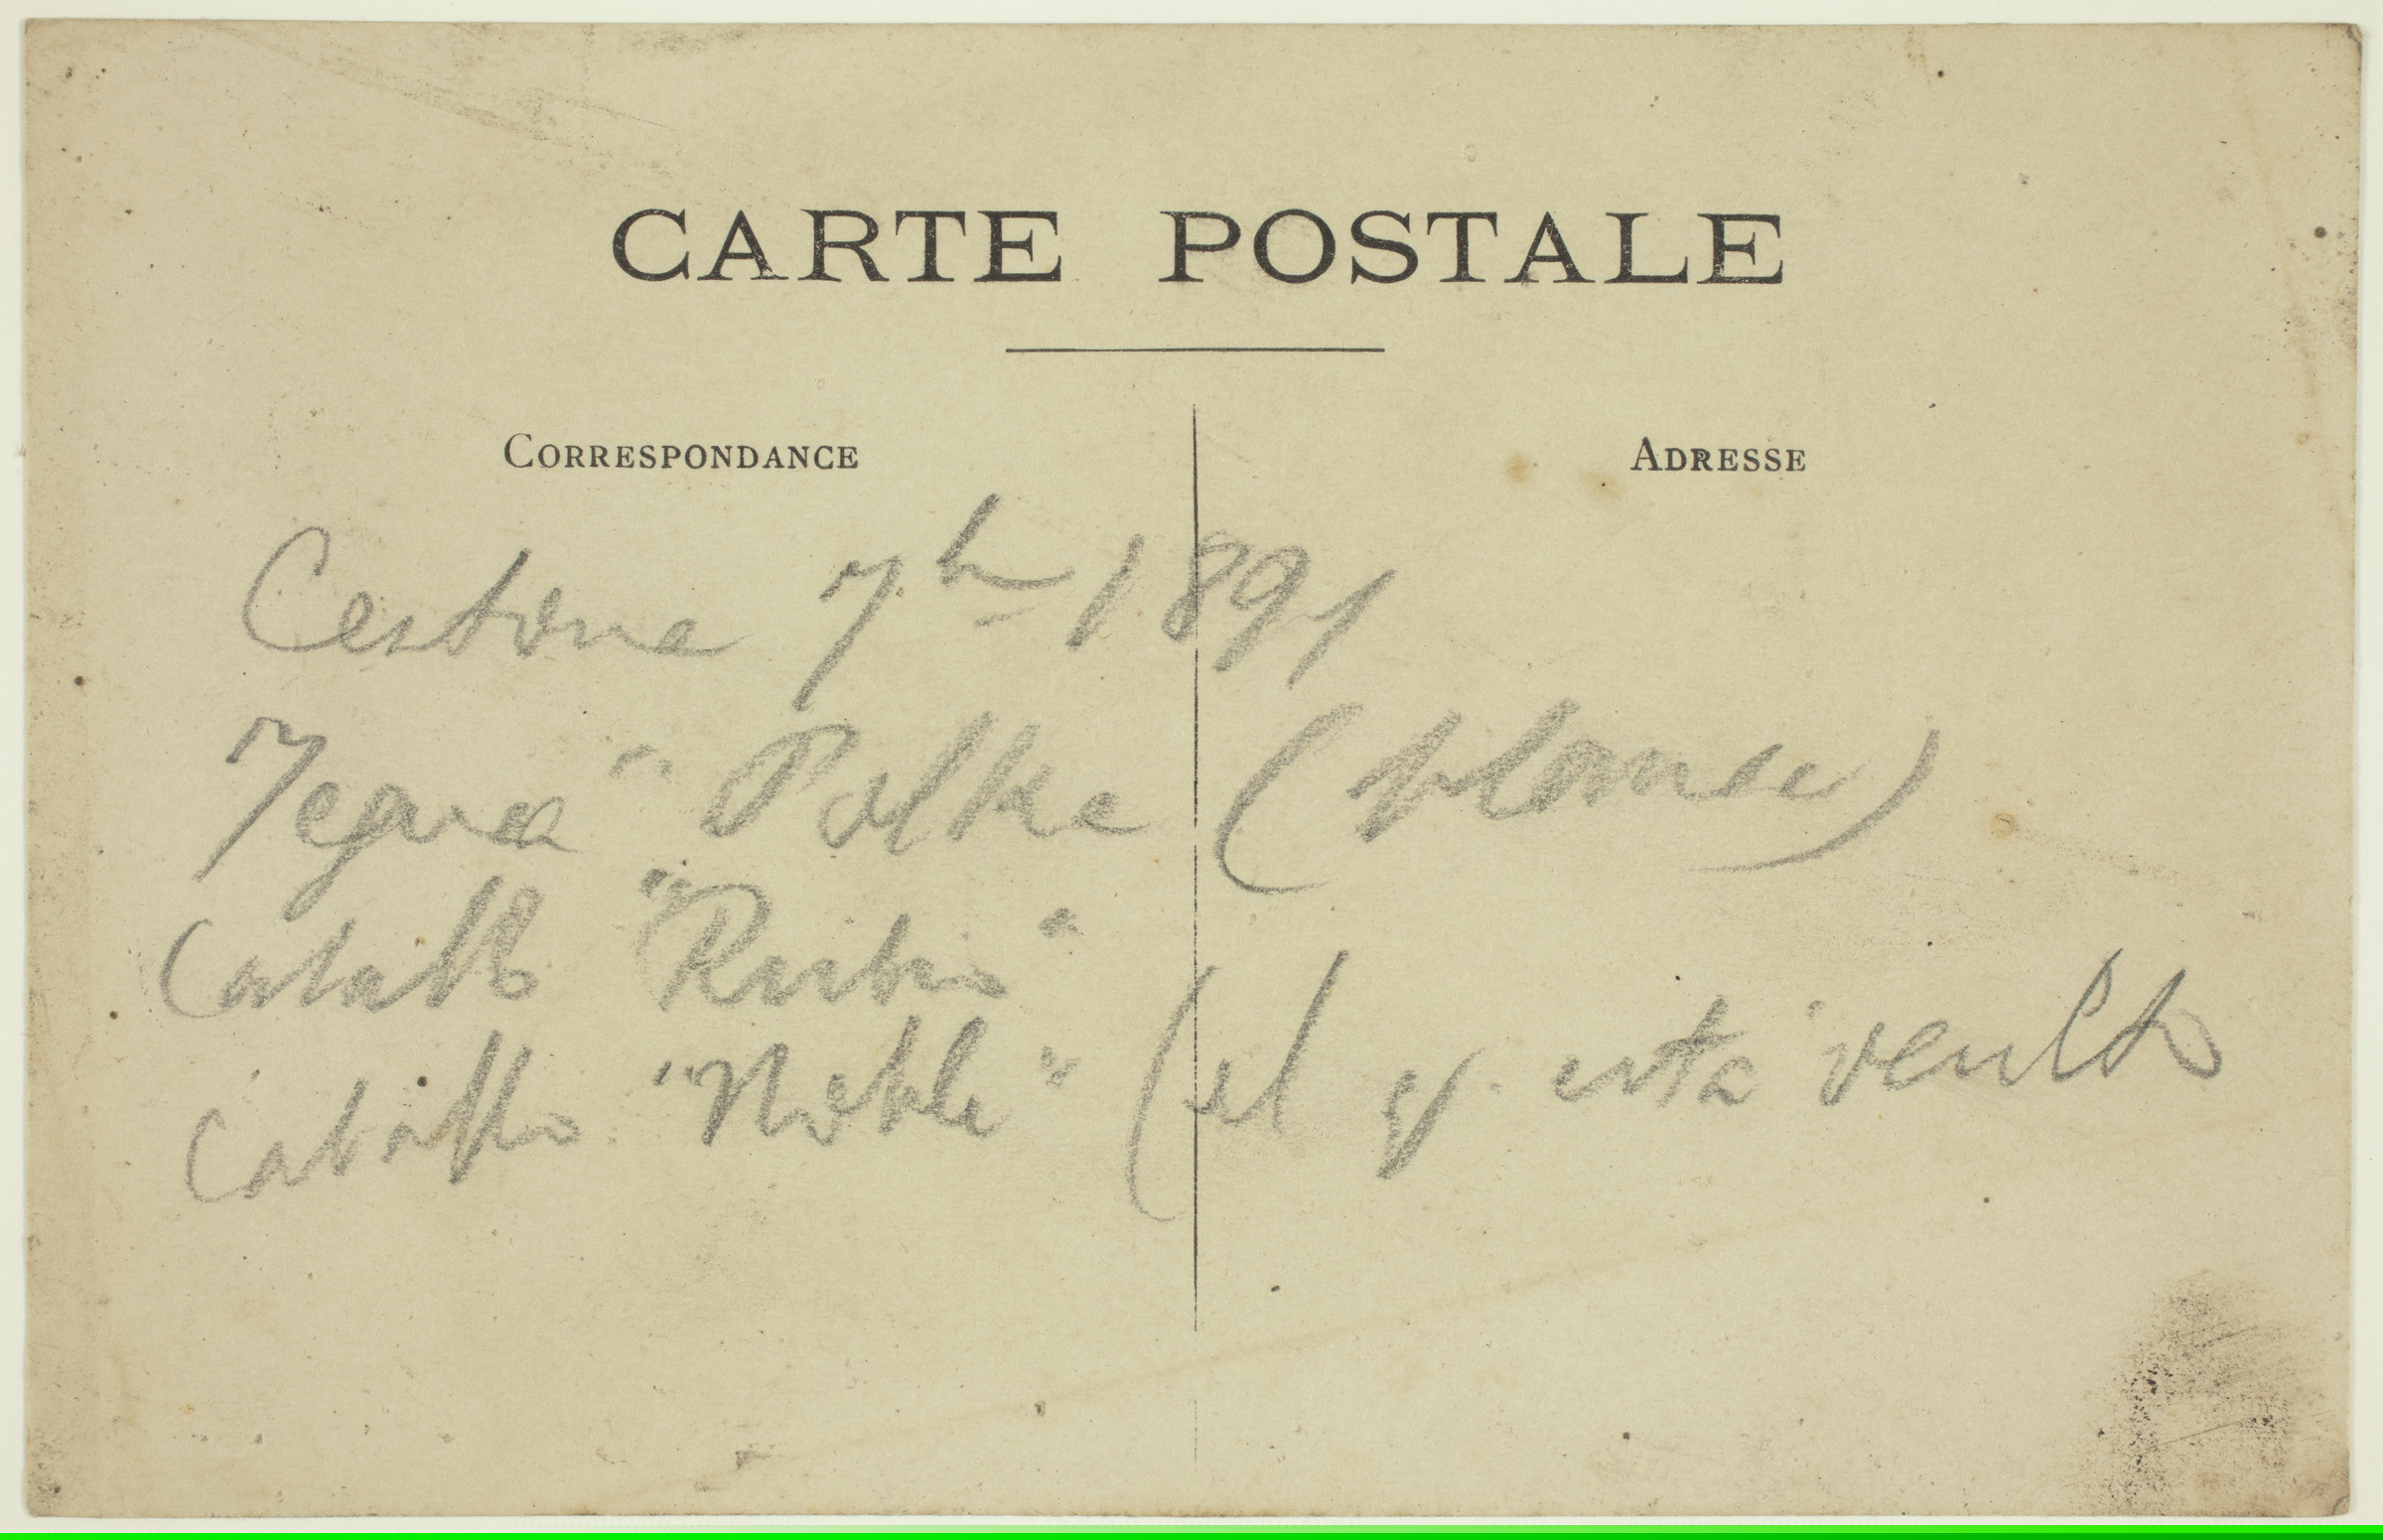 CARTE POSTALE
CORRESPONDANCE
ADRESSE
Cestona 7bre 1891
Yegua "Polka (blanca)
Caballo "Rubio"
Caballo "Noble" (el q. está vuelto